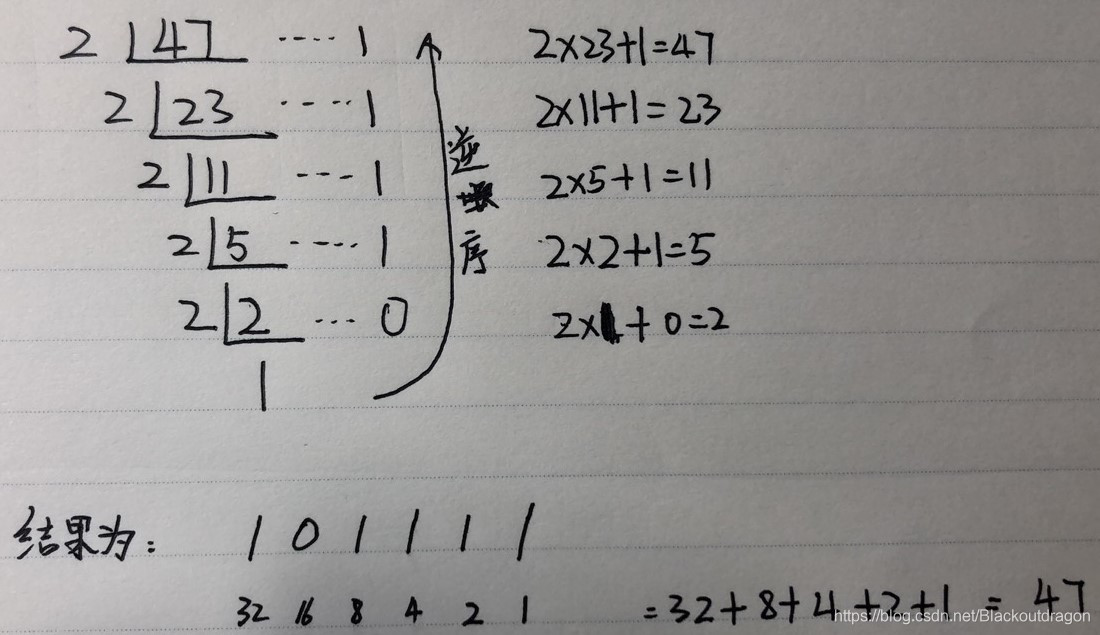 2 47 ···· 1 2×23+1=47
2 23 ···· 1 2×11+1=23
2 11 ···· 1 2×5+1=11
2 5 ···· 1 2×2+1=5
2 2 ··· 0 2×1+0=2
1
逆序
结果为: 1 0 1 1 1 1
32 16 8 4 2 1 =32+8+4+2+1 = 47
https://blog.csdn.net/Blackoutdragon